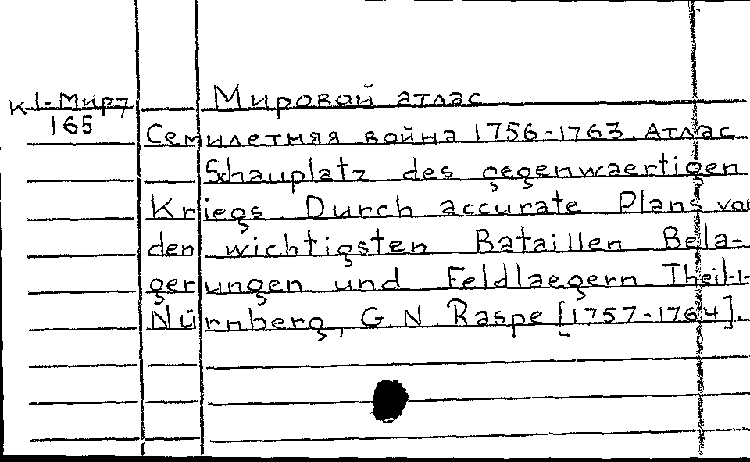 К1-Мир7
165
Мировой атлас
Семилетняя война 1756-1763. Атлас
Schauplatz des gegenwaertigen
Kriegs. Durch accurate Plans vo
den wichtigsten Bataillen Bela-
gerungen und Feldlaegern Theil-1-
Nürnberg, G. N. Raspe [1757-1764].